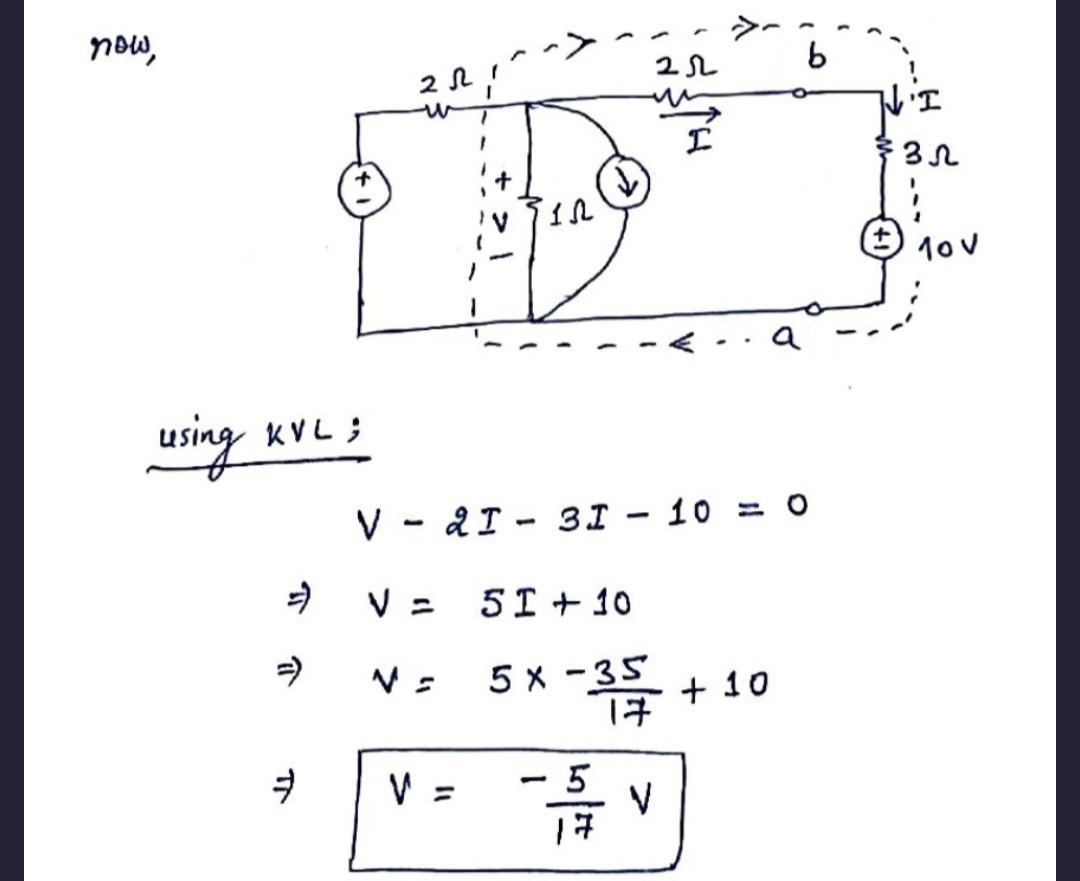 now,
2Ω
2Ω
b
I
I
3Ω
+
-
+
V
-
1Ω
±
10V
a
using KVL;
V - 2I - 3I - 10 = 0
⇒ V = 5I + 10
⇒ V = 5 × -35/17 + 10
⇒ V = -5/17 V